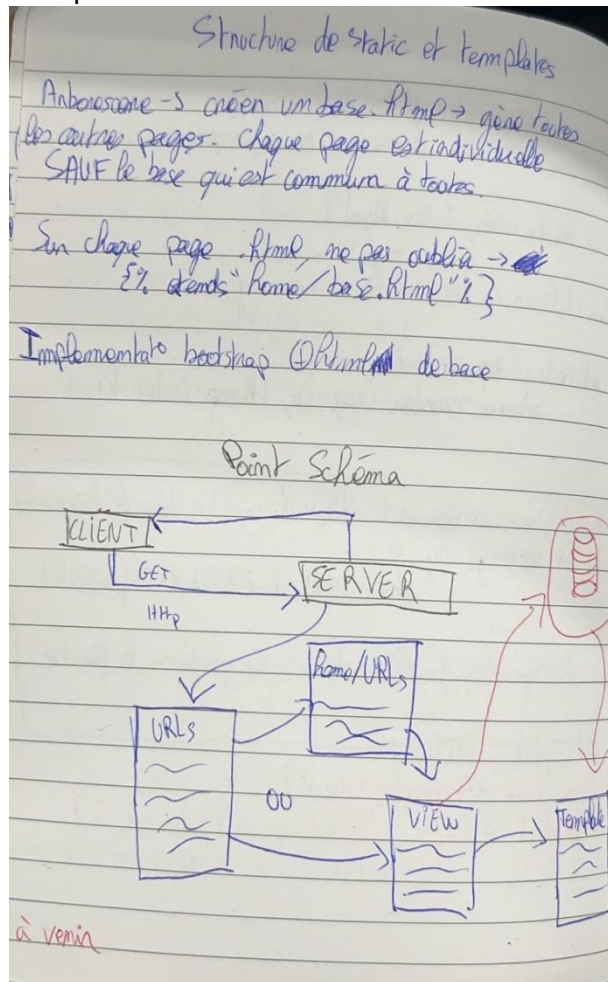 Structure de static et templates
Arborescence -> créer un base.html -> gère toutes
les autres pages. Chaque page est individuelle
SAUF le base qui est commun à toutes.
Sur chaque page .html, ne pas oublier ->
{% extends "home/base.html" %}
Implementat° bootstrap ⊕ html de base
Point Schéma
CLIENT
GET
HTTP
SERVER
home/URLs
URLs
OU
VIEW
Template
à venir